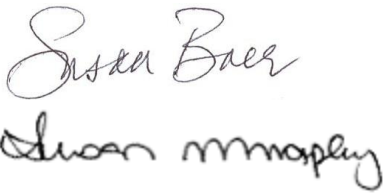 Susan Baer
Susan Murphy